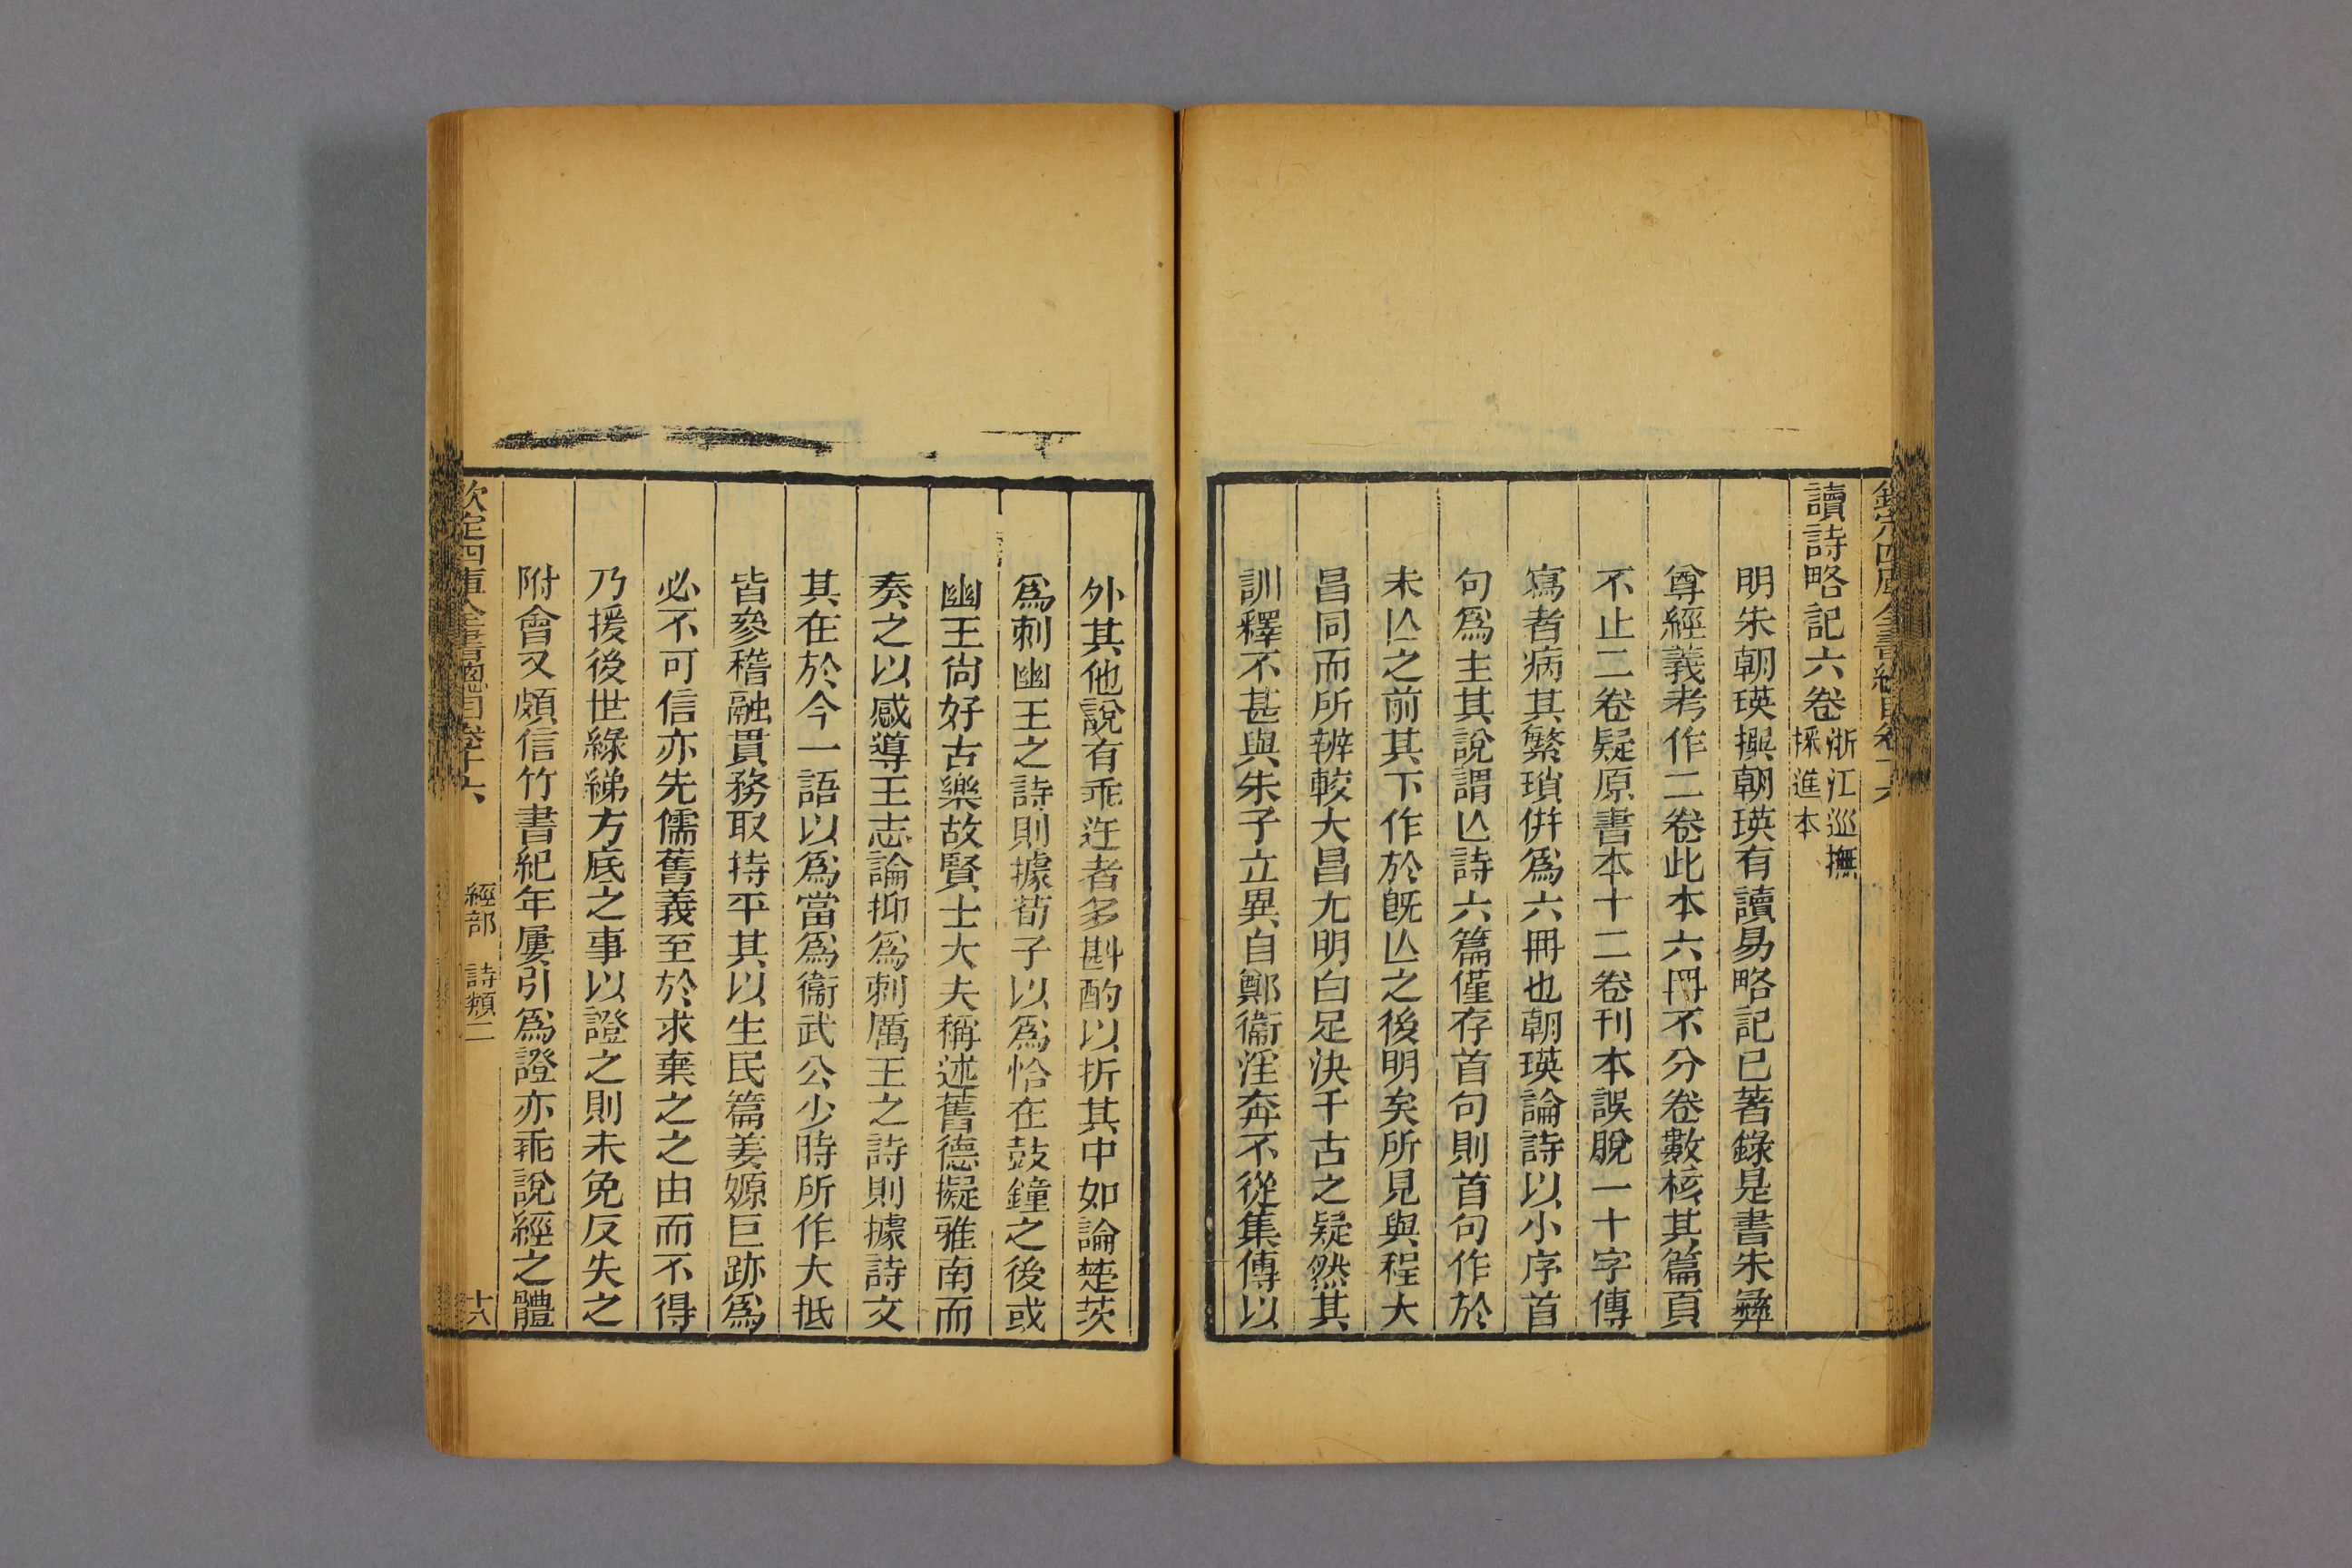 欽定四庫全書總目卷十六
讀詩略記六卷浙江巡撫採進本
明朱朝瑛撰朝瑛有讀易略記已著錄是書朱彝
尊經義考作二卷此本六冊不分卷數核其篇頁
不止二卷疑原書本十二卷刊本誤脫一十字傳
寫者病其繁瑣倂爲六冊也朝瑛論詩以小序首
句爲主其說謂亾詩六篇僅存首句則首句作於
未亾之前其下作於旣亾之後明矣所見與程大
昌同而所辨較大昌尤明白足決千古之疑然其
訓釋不甚與朱子立異自鄭衞淫奔不從集傳以
外其他說有乖迕者多斟酌以折其中如論楚茨
爲刺幽王之詩則據荀子以爲恰在鼓鐘之後或
幽王尙好古樂故賢士大夫稱述舊德擬雅南而
奏之以感導王志論抑爲刺厲王之詩則據詩文
其在於今一語以爲當爲衞武公少時所作大抵
皆參稽融貫務取持平其以生民篇姜嫄巨跡爲
必不可信亦先儒舊義至於求棄之之由而不得
乃援後世綠綈方底之事以證之則未免反失之
附會又頗信竹書紀年屢引爲證亦乖說經之體
欽定四庫全書總目卷十六 經部 詩類二 十八